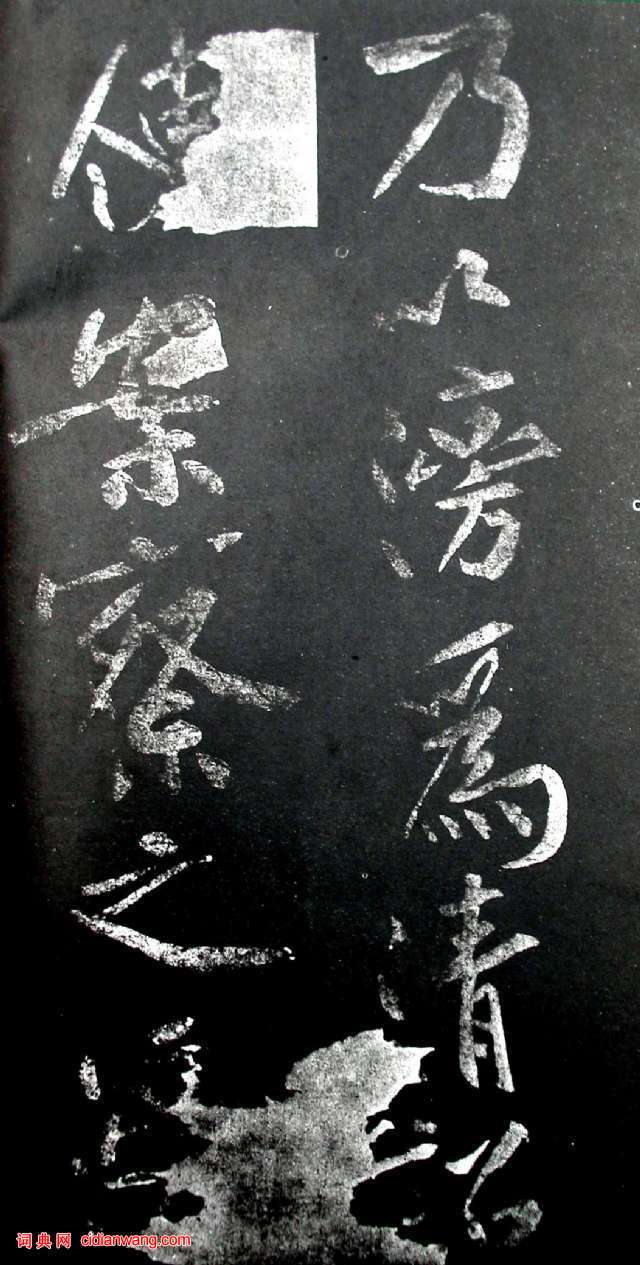 乃以滂爲清詔
使案察之
词典网 cidianwang.com